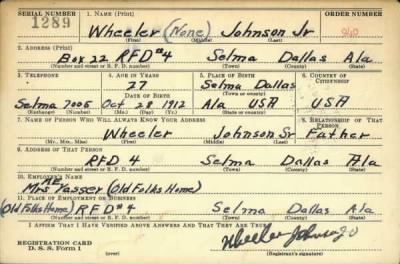 SERIAL NUMBER 1. NAME (Print) ORDER NUMBER
1289 Wheeler (None) Johnson Jr
(First) (Middle) (Last)
2. ADDRESS (Print)
Box 22 RFD #4 Selma Dallas Ala
(Number and street or R. F. D. number) (Town) (County) (State)
3. TELEPHONE 4. AGE IN YEARS 5. PLACE OF BIRTH 6. COUNTRY OF CITIZENSHIP
27 Selma Dallas
DATE OF BIRTH (Town or county)
Selma 7005 Oct 28 1912 Ala USA USA
(Exchange) (Number) (Mo.) (Day) (Yr.) (State or country)
7. NAME OF PERSON WHO WILL ALWAYS KNOW YOUR ADDRESS 8. RELATIONSHIP OF THAT PERSON
Wheeler Johnson Sr Father
(Mr., Mrs., Miss) (First) (Middle) (Last)
9. ADDRESS OF THAT PERSON
RFD 4 Selma Dallas Ala
(Number and street or R. F. D. number) (Town) (County) (State)
10. EMPLOYER'S NAME
Mrs Vasser (Old Folks Home)
11. PLACE OF EMPLOYMENT OR BUSINESS
(Old Folks Home) RFD #4 Selma Dallas Ala
(Number and street or R. F. D. number) (Town) (County) (State)
I AFFIRM THAT I HAVE VERIFIED ABOVE ANSWERS AND THAT THEY ARE TRUE.
REGISTRATION CARD
D. S. S. Form 1 (over) Wheeler Johnson Jr